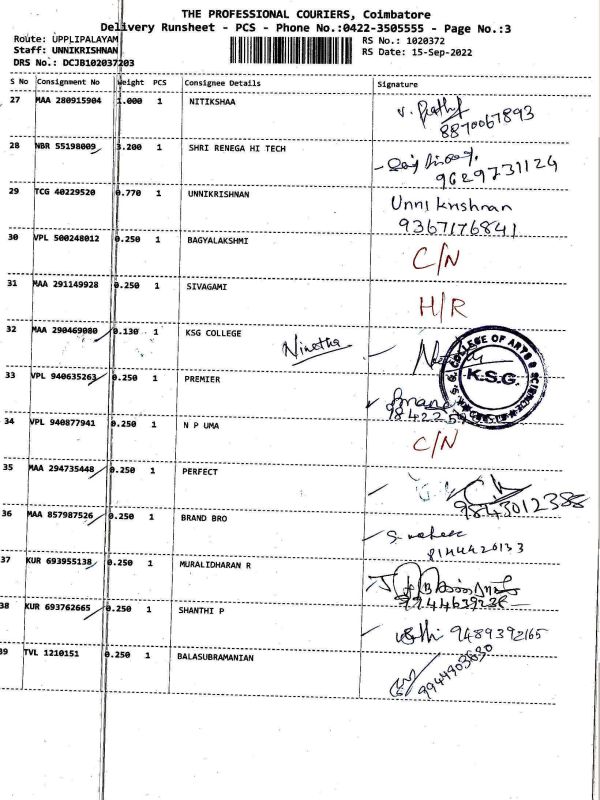 THE PROFESSIONAL COURIERS, Coimbatore
Delivery Runsheet - PCS - Phone No.:0422-3505555 - Page No.:3
Route: UPPLIPALAYAM
Staff: UNNIKRISHNAN
DRS No.: DCJB102037203
RS No.: 1020372
RS Date: 15-Sep-2022
S No Consignment No Weight PCS Consignee Details Signature
27 MAA 280915904 1.000 1 NITIKSHAA
8870067893
28 NBR 55198009 3.200 1 SHRI RENEGA HI TECH
9629731124
29 TCG 40229520 0.770 1 UNNIKRISHNAN Unni krishnan
9367176841
30 VPL 500248012 0.250 1 BAGYALAKSHMI C/N
31 MAA 291149928 0.250 1 SIVAGAMI H/R
32 MAA 290469080 0.130 1 KSG COLLEGE Nivetha
K.S.G. COLLEGE OF ARTS & SCIENCE
K.S.G.
33 VPL 940635263 0.250 1 PREMIER
34 VPL 940877941 0.250 1 N P UMA C/N
35 MAA 294735448 0.250 1 PERFECT
9843012388
36 MAA 857987526 0.250 1 BRAND BRO
8144420133
37 KUR 693955138 0.250 1 MURALIDHARAN R
38 KUR 693762665 0.250 1 SHANTHI P 9489392165
39 TVL 1210151 0.250 1 BALASUBRAMANIAN
9944903630